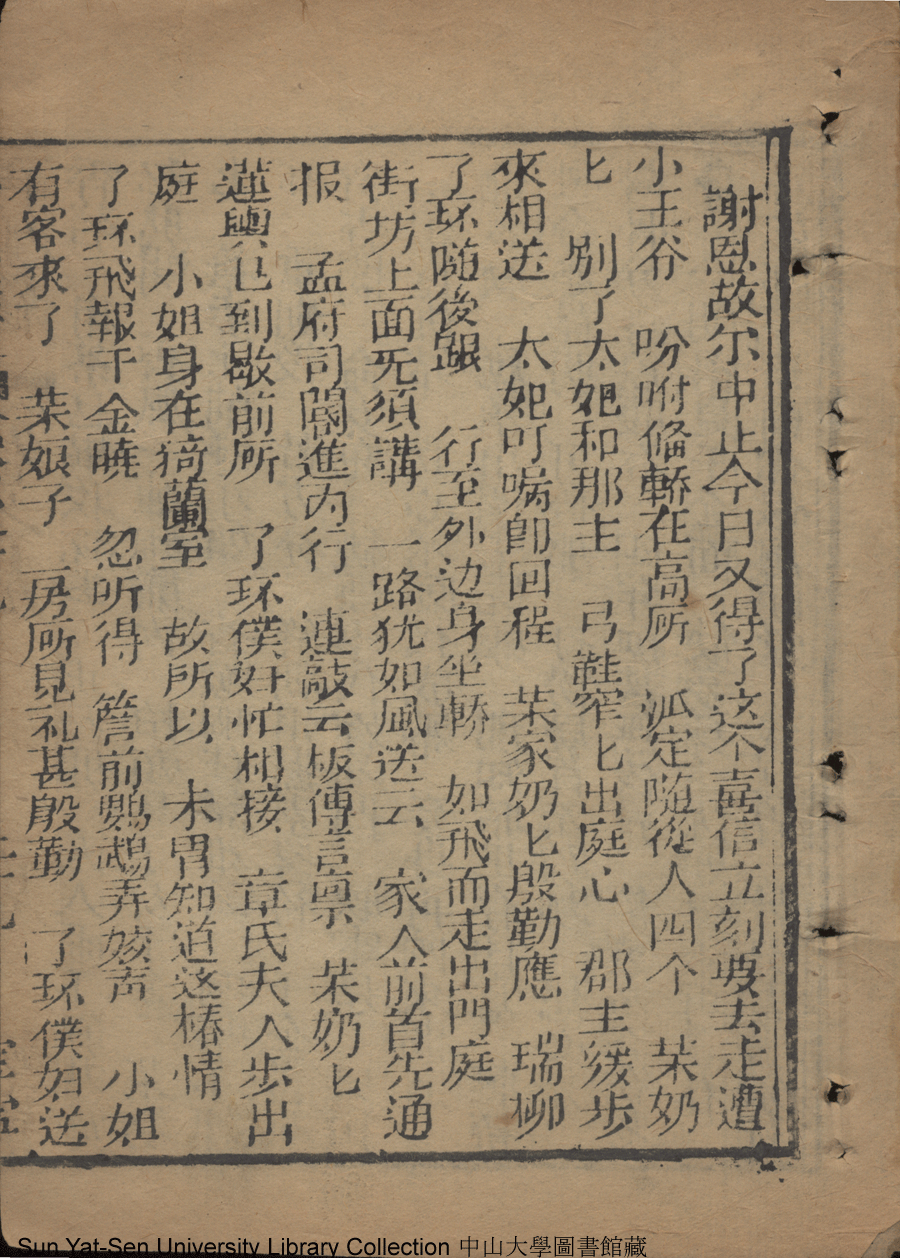 謝恩故尔中止今日又得了这个喜信立刻要去走遭
小王谷　吩咐俻轎在高所　派定随從人四个　茱奶
匕　别了太妃和那主　弓鞋窄匕出庭心　郡主缓步
來相送　太妃叮嘱卽回程　茱家奶匕殷勤應　瑞柳
了环随後跟　行至外边身坐轎　如飛而走出門庭
街坊上面旡須講　一路犹如風送云　家人前首先通
报　孟府司閽進内行　連敲云板傳言禀　茱奶匕
蓮輿已到歇前所　了环僕妇忙相接　章氏夫人歩出
庭　小姐身在猗蘭室　故所以　未胃知道这樁情
了环飛報千金曉　忽听得　簷前鹦鵡弄姣声　小姐
有客來了　茱娘子　一房所見礼甚殷勤　了环僕妇送
Sun Yat-Sen University Library Collection 中山大學圖書館藏